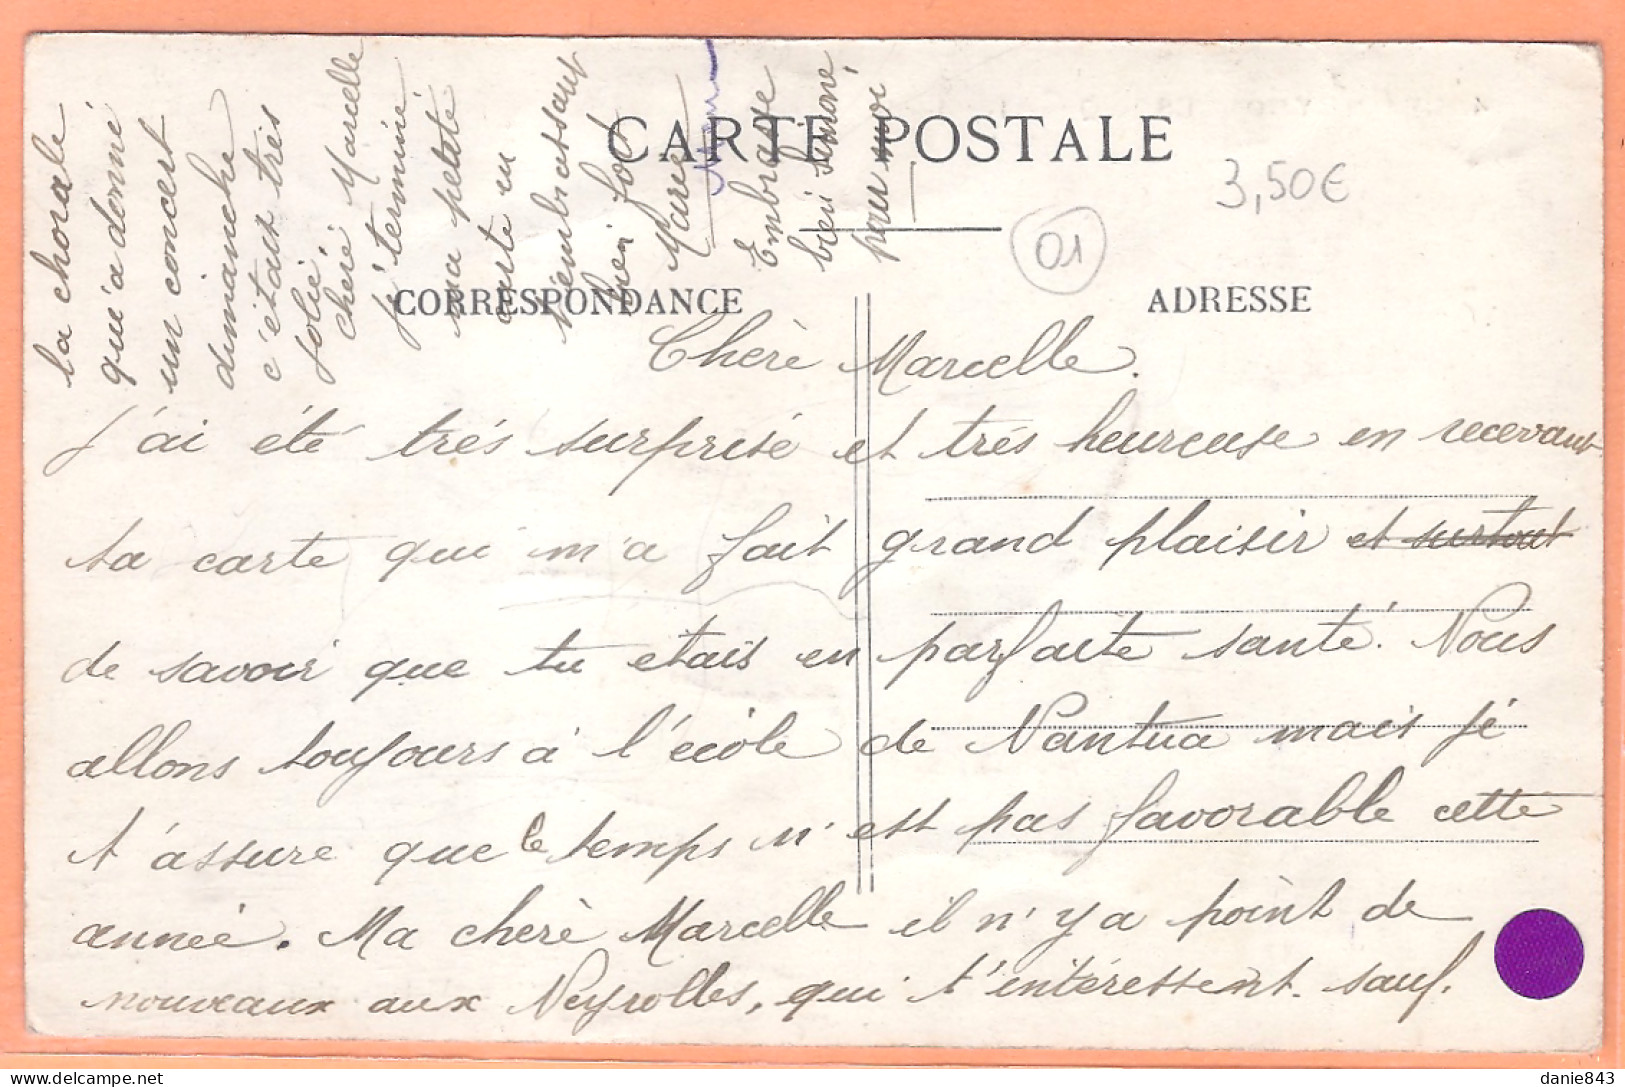 CARTE POSTALE
3,50€
01
CORRESPONDANCE
ADRESSE
Cheré Marcelle.
J'ai été trés surprisé et trés heureuse en recevant
ta carte qui m'a fait grand plaisir et surtout
de savoir que tu étais en parfaite santé. Nous
allons toujours à l'école de Nantua mais jé
t'assure que le temps n'est pas favorable cette
année. Ma cheré Marcelle il n'y a point de
nouveaux aux Neyrolles, qui t'intéressent. sauf.
la chorale
qui a donné
un concert
dimanche
c'était trés
jolie
cheré Marcelle
jé terminé
ma petate
carte en
t'embrassant
bien fort
Marie
Embrasse
bien Simone,
pour moi
danie843